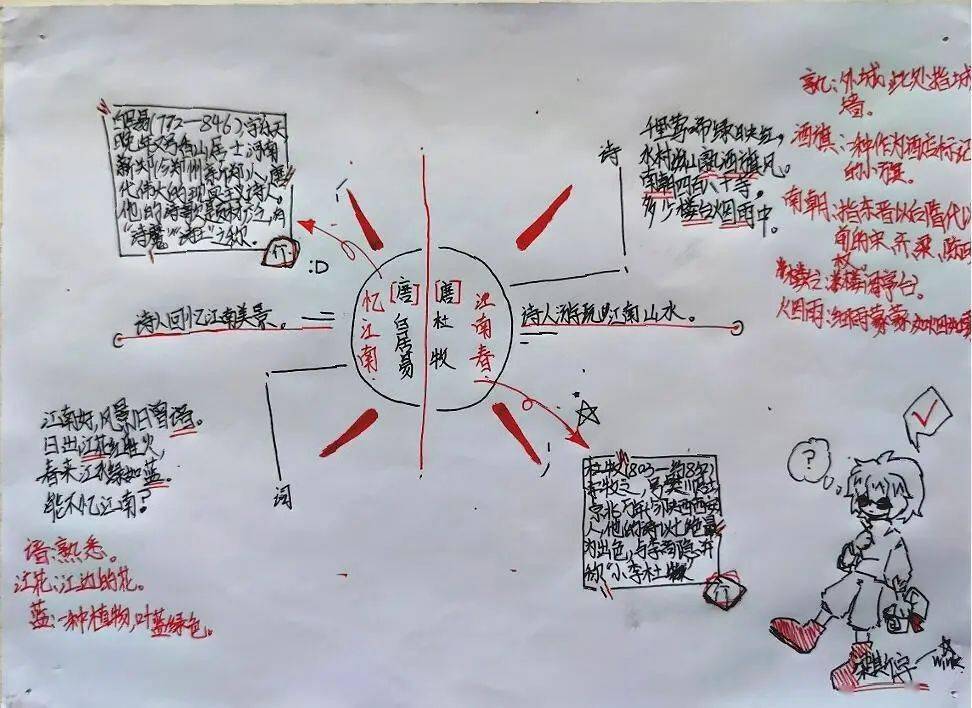 居易(772—846)字乐天
晚年又号香山居士河南
新郑(今郑州新郑)人,唐
代伟大的现实主义诗人
他的诗歌题材广泛,有
"诗魔""诗王"之称.
:D
诗人回忆江南美景。
江南好,风景旧曾谙。
日出江花红胜火,
春来江水绿如蓝。
能不忆江南?
词
谙:熟悉。
江花:江边的花。
蓝:一种植物,叶蓝绿色。
忆江南
[唐]白居易
[唐]杜牧
江南春
诗
千里莺啼绿映红,
水村山郭酒旗风。
南朝四百八十寺,
多少楼台烟雨中。
诗人 江南山水。
:外城,此处指城
墙。
酒旗:一种作为酒店标记
的小旗。
南朝:指东晋以后隋代以
前的宋、齐、梁、陈四
楼台:楼阁亭台。
烟雨:细雨蒙蒙,如烟如
杜牧(803—约852)
字牧之,号樊川
京兆万年(今陕西西安)
人,他的诗以七绝最
为出色,与李商隐并
称"小李杜"
?
wink